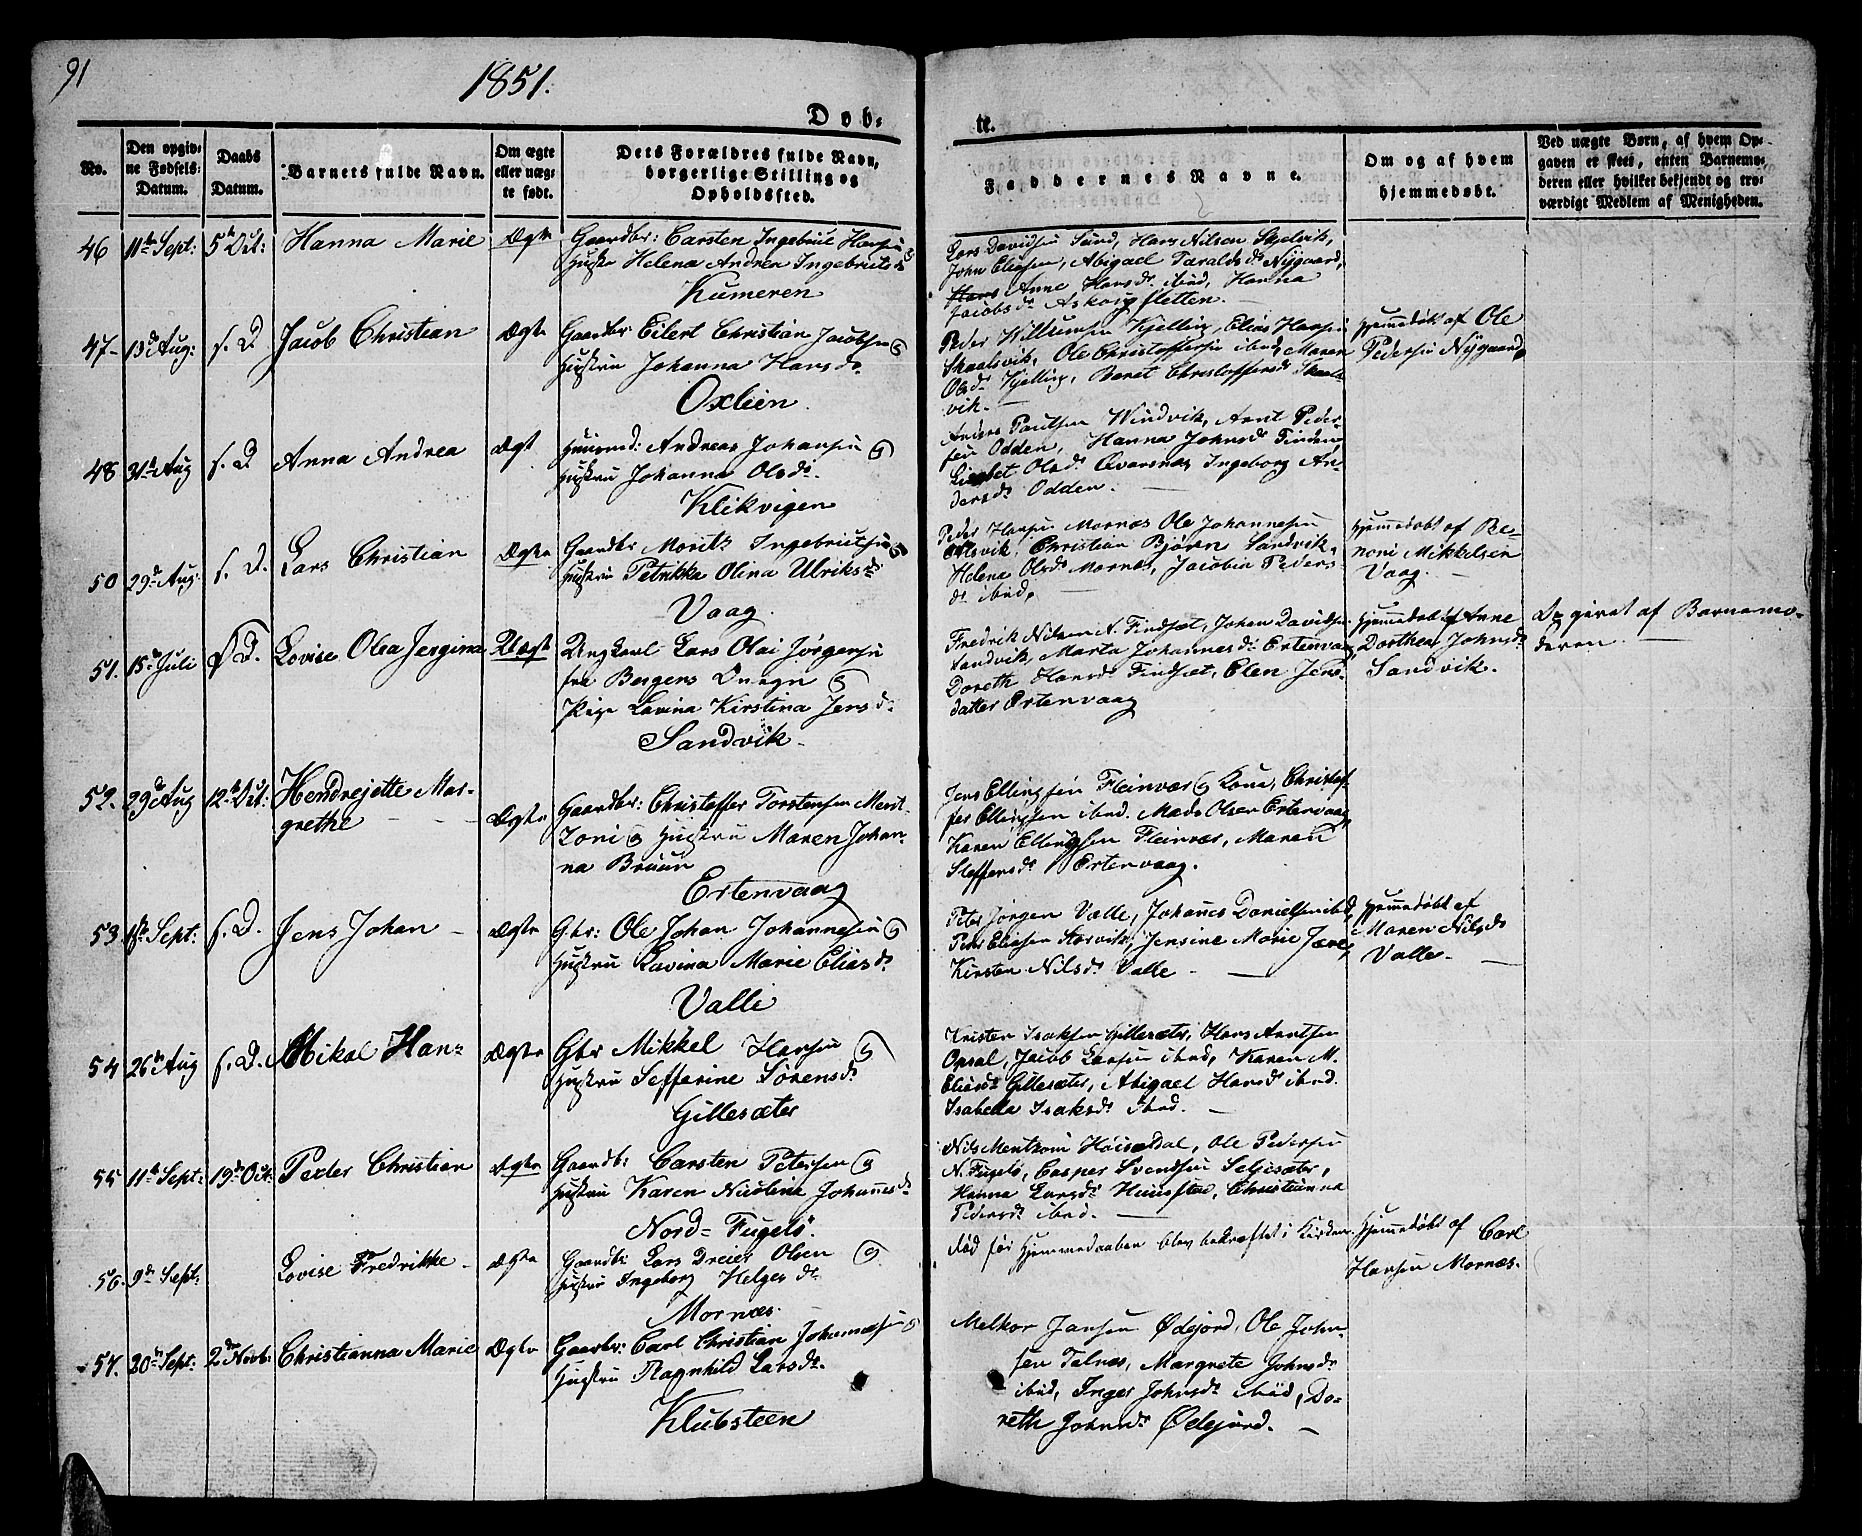 91
1851.
Døb-
te.
No.
Den opgivne Fødsels-Datum.
Daabs Datum.
Barnets fulde Navn.
Om ægte eller uægte født.
Dets Forældres fulde Navn, borgerlige Stilling og Opholdssted.
Faddernes Navne.
Om og af hvem hjemmedøbt.
Ved uægte Børn, af hvem Opgaven er skeet, enten Barnemoderen eller hvilket bekjendt og troværdigt Medlem af Menigheden.
46 11te Sept: 5te Oct: Hanna Marie Ægte
Gaardbr: Carsten Ingebrie Hansen &
Hustru Helena Andrea Ingebrits d.
Kumeren
Lars Davidsen Sund, Hans Nilsen Skjelvik,
John Eliasen, Abigael Taralds d. Nygaard,
Anne Hans d. ibid, Hanna
Jacobs d. Askougsletten.
47 13de Aug: s. D. Jacob Christian Ægte
Gaardbr: Eilert Christian Jacobsen &
Hustru Johanna Hans d.
Oxlien.
Peder Willumsen Kjelling, Elias Hansen
Skaalsvik, Ole Christoffersen ibid, Maren
Ols d. Kjelling, Beret Christoffers d. Skaals-
vik.
Hjemmedøbt af Ole
Pedersen Nygaard
48 31te Aug s. D. Anna Andrea Ægt
Huusmd: Andreas Johansen &
Hustru Johanna Ols d.
Klikvigen
Anders Paulsen Windvik, Arnt Peder-
sen Odden, Hanna Johns d. Finden
Lisebet Ols d. Evarsnes Ingeborg An-
ders d. Odden.
50 29de Aug: s. D. Lars Christian Ægte
Gaardbr Morits Ingebrictsen &
Hustru Petrikka Olina Ulriks d.
Vaag.
Peder Hansen Mornæs Ole Johannesen
Christian Bjørn Sandvik,
Helena Ols d. Mornæs, Jacobia Peders
d. ibid,
Hjemmedøbt af Be-
noni Mikkelsen
Vaag.
51. 15de Juli s. D. Lovise Olea Jergina Uægt
Ungkarl Lars Olai Jørgensen
fra Bergens &
Pige Lavina Kirstina Jens d.
Sandvik.
Fredrik Nilsen N. Findsæt, Johan Davidsen
Sandvik, Marta Johannes d. Ertenvaag
Doreth Hans d. Findsæt, Elen Jens-
datter Ertenvaag
Hjemmedøbt af Anne
Dorthea Johns d.
Sandvik.
Opgivet af Barnemo-
deren
52. 29de Aug 12te Oct: Hendrejette Mar-
grethe Ægte
Gaardbr: Christoffer Torstensen Merit-
Zoni & Hustru Maren Johan-
na Bruun
Ertenvaag
Jens Ellingsen Fleinvær & Kone, Christof-
fer Ellingsen ibid. Mads Olsen Ertenvaag,
Karen Ellingsen Fleinvær, Maren
Steffens d. Ertenvaag.
53 Sept: s. D. Jens Johan Ægte
Gbr: Ole Johan Johannesen &
Hustru Lavina Marie Elias d.
Valle
Peter Jørgen Valle, Johannes Danielsen ibid,
Peter Eliasen Storvik, Jensine Marie
Kirsten Nils d. Valle
Hjemmedøbt af
Maren Nils d.
Valle
54 26de Aug s. D. Mikal Han- Ægte
Gbr Mikkel Hansen &
Hustru Sefferine Sørens d.
Gillesæter
Kristen Isaksen Gillesæter, Hans Arntsen
Opsal, Jacob Larsen ibid, Karen M.
Elias d. Gillesæter, Abigael Hans d. ibid.
Isabella Isaks d. ibid.
55 11te Sept: 19de Oct: Peder Christian Ægte
Gaardb: Carsten Petersen &
Hustru Karen Nicolina Johannes d.
Nord-Fugelø.
Nils Mentzoni Høisædal, Ole Pedersen
N. Fugelø, Casper Svendsen Seljesæter,
Hanna Lars d. Huusstad, Christianna
Peders d. ibid.
56. 9de Sept: Lovise Fredrikke Ægte
Gaardb: Lars Dreier Olsen &
Hustru Ingeborg Helges d.
Mornæs.
død før Hjemmedaaben blev bekræftet i Kirken
Hjemmedøbt af Carl
Hansen Mornæs.
57. 20de Sept: 2den Novb: Christianna Marie Ægte
Gaardbr: Carl Christian Johannesen &
Hustru Ragnhild Lars d.
Klubsteen
Melkor Jansen Ødejord, Ole John-
sen Talnæs, Margrete Johns d.
ibid, Inger Johns d. ibid, Do-
reth Johns d. Ødejord.